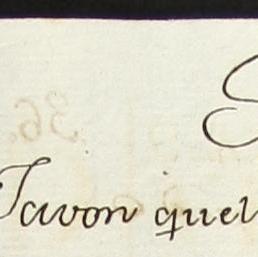 S
Javon quel